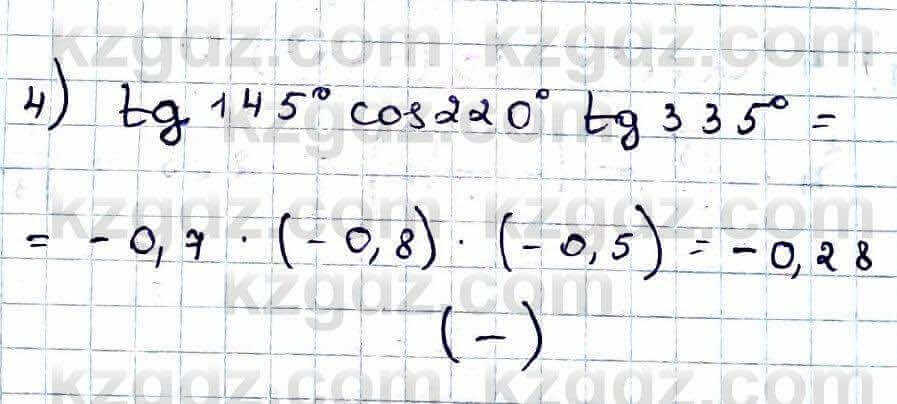 kzgdz.com kzgdz.com
4) tg 145° cos 220° tg 335° =
kzgdz.com
kzgdz.com kzgdz.com
= -0,7 · (-0,8) · (-0,5) = -0,28
kzgdz.com
(-)
kzgdz.com kzgdz.com